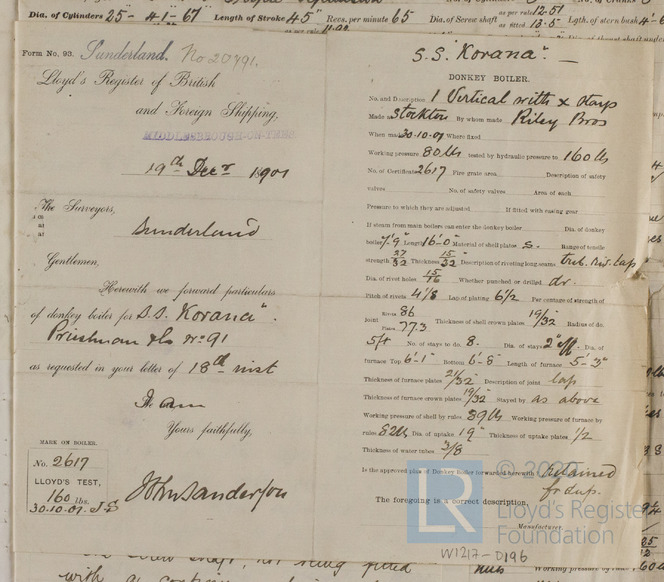 Dia. of Cylinders 25 - 41 - 67 Length of Stroke 45" Revs. per minute 65 Dia. of Screw shaft as per rule 12.51 as fitted 13.5 Lgth. of stern bush 4'-6
Form No. 93. Sunderland. No 20791.
Lloyd's Register of British
and Foreign Shipping,
MIDDLESBROUGH-ON-TEES
19th Decr 1901
The Surveyors,
Sunderland
Gentlemen,
Herewith we forward particulars
of donkey boiler for S.S. "Korana".
Priestman & Co No 91
as requested in your letter of 18th inst
I am
Yours faithfully,
John Sanderson
MARK ON BOILER.
No. 2617
LLOYD'S TEST,
160 lbs.
30.10.01. J S
S.S. "Korana". —
DONKEY BOILER.
No. and Description 1 Vertical with x stays
Made at Stockton By whom made Riley Bros
When made 30.10.01 Where fixed
Working pressure 80 lbs tested by hydraulic pressure to 160 lbs
No. of Certificate 2617 Fire grate area, Description of safety
valves No. of safety valves Area of each
Pressure to which they are adjusted If fitted with easing gear
If steam from main boilers can enter the donkey boiler Dia. of donkey
boiler 7'-9" Length 16'-0" Material of shell plates S. Range of tensile
strength 27/32 Thickness 15/32 Description of riveting long seams treb. riv. lap
Dia. of rivet holes 15/16 Whether punched or drilled dr.
Pitch of rivets 4 1/8 Lap of plating 6 1/2 Per centage of strength of
joint Rivets 86 Plates 77.3 Thickness of shell crown plates 19/32 Radius of do.
5ft No. of stays to do. 8. Dia. of stays 2" eff. Dia. of
furnace Top 6'-1" Bottom 6'-8" Length of furnace 5'-3"
Thickness of furnace plates 21/32 Description of joint lap
Thickness of furnace crown plates 19/32 Stayed by as above
Working pressure of shell by rules 89 lbs Working pressure of furnace by
rules 82 lbs Dia. of uptake 19" Thickness of uptake plates 1/2
Thickness of water tubes 3/8
Is the approved plan of Donkey Boiler forwarded herewith retained
for dup.
The foregoing is a correct description,
Manufacturer.
LR
Lloyd's Register
Foundation
W1217-0196